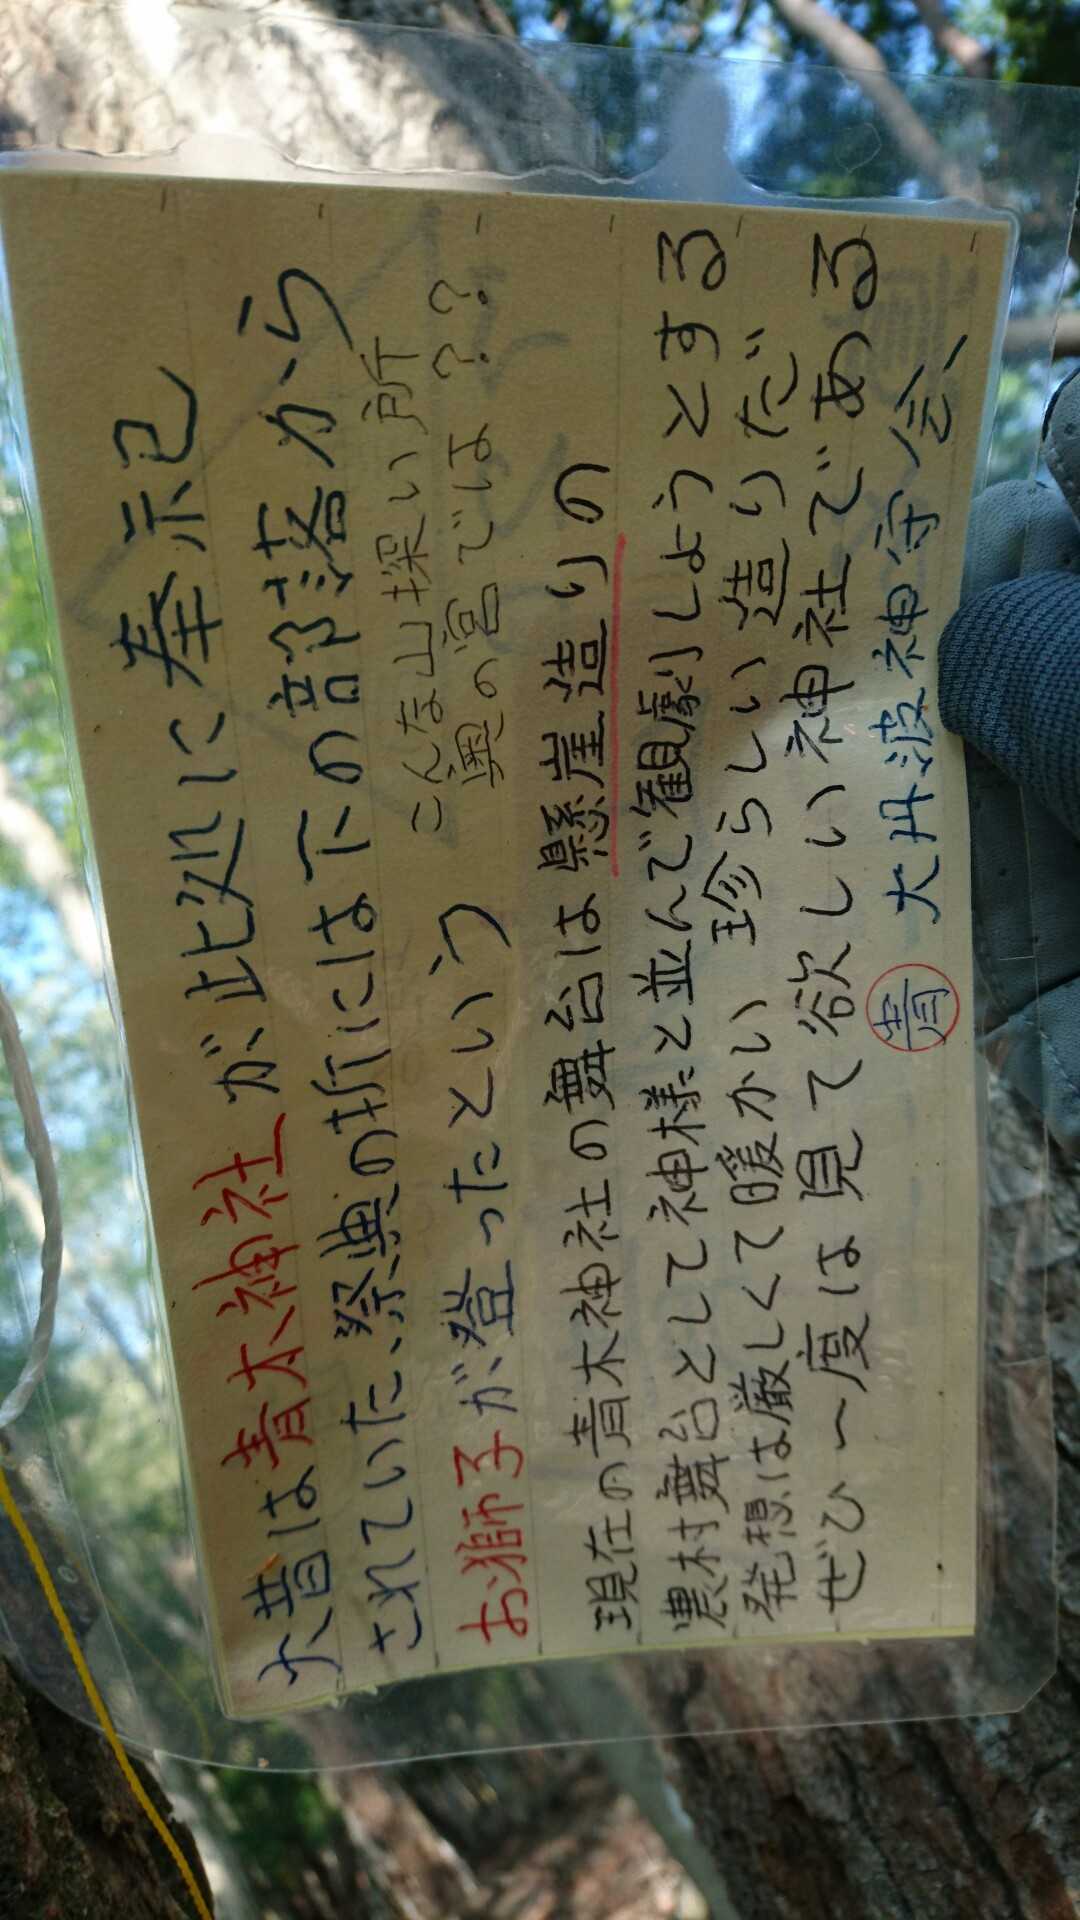 大昔は青木神社が此処に奉祀
されていた、祭典の折には下の部落から
お獅子が登ったという
こんな山深い所
奥の宮では??
現在の青木神社の舞台は懸崖造りの
農村舞台として神様と並んで観劇しようとする
発想は厳しくて暖かい 珍らしい造りだ
ぜひ一度は見て欲しい神社である
青 大丹波神守会、